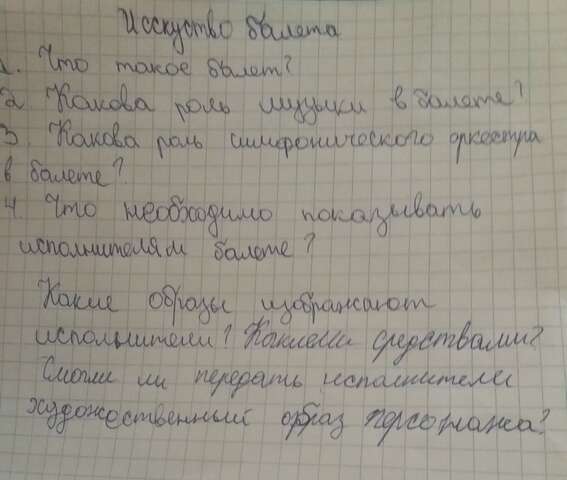 Исскуство балета
1. Что такое балет?
2 Какова роль музыки в балете?
3. Какова роль симфонического оркестра
в балете?
4. Что необходимо показывать
исполнителям балете?
Какие образы изображают
исполнители? Какими средствами?
Смогли ли передать исполнители
художественный образ персонажа?